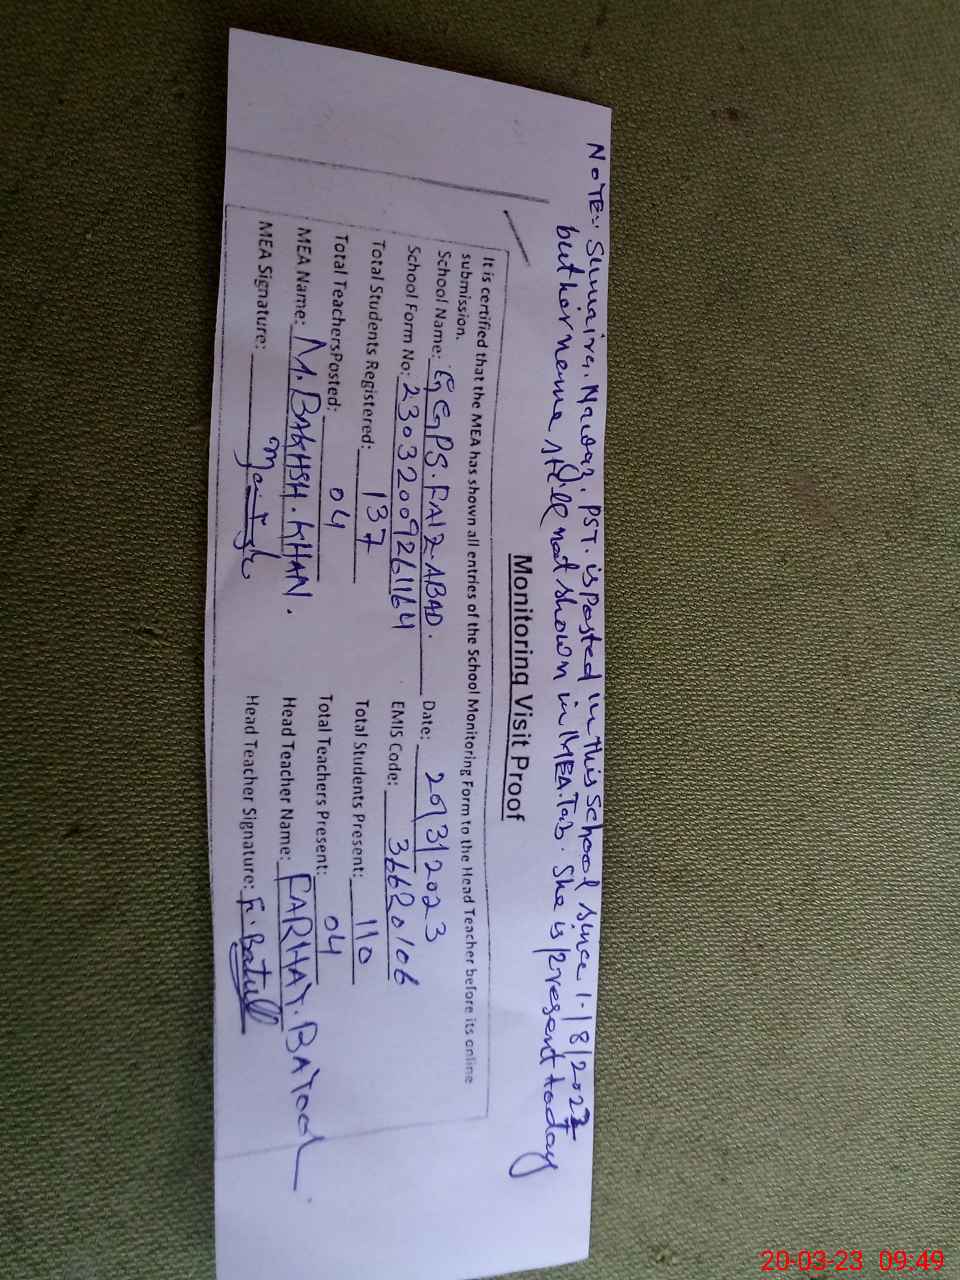 NOTE:- Sumaira. Nawaz. PST. is posted in this school since 1-/8/2022
but her name still not shown in MEA. Tab. She is present today
Monitoring Visit Proof
It is certified that the MEA has shown all entries of the School Monitoring Form to the Head Teacher before its online
submission.
School Name: GGPS. FAIZ. ABAD. Date: 20/3/2023
School Form No: 23032009261164 EMIS Code: 36620106
Total Students Registered: 137 Total Students Present: 110
Total TeachersPosted: 04 Total Teachers Present: 04
MEA Name: M. BAKHSH. KHAN. Head Teacher Name: FARHAT. BATOOL.
MEA Signature: Head Teacher Signature: F. Batull
20-03-23 09:49